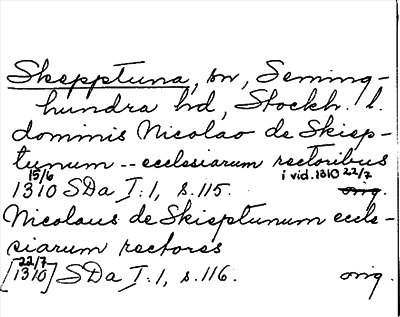 Skepptuna, sn, Seming-
hundra hd, Stockh. l.
dominis Nicolao de Skiep-
tunum -- ecclesiarum rectoribus
15/6 i vid. 1310 22/7
1310 SDa I:1, s. 115. orig.
Nicolaus de Skieptunum eccle-
siarum rectores
22/7
[1310] SDa I:1, s. 116. orig.